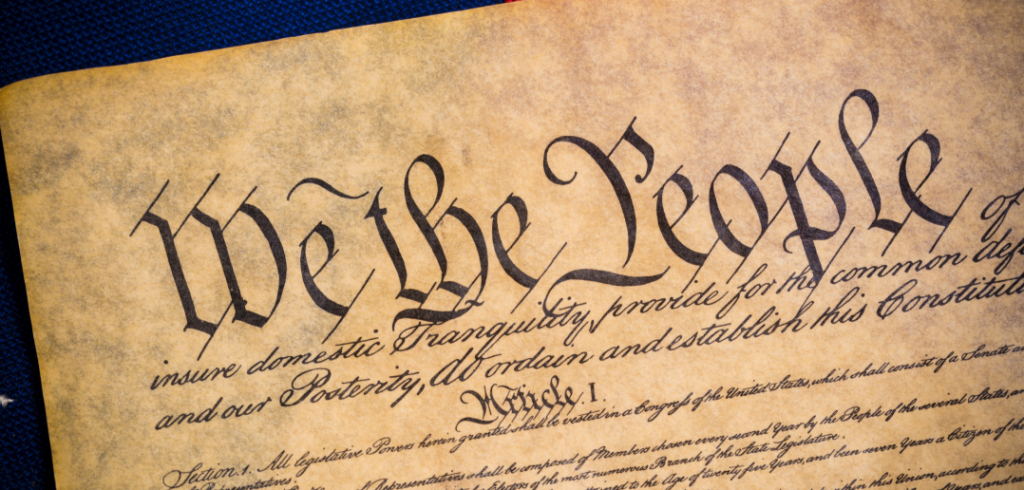 We the People of
insure domestic Tranquility, provide for the common defe
and our Posterity, do ordain and establish this Constituti
Article. I.
Section 1. All legislative Powers herein granted shall be vested in a Congress of the United States, which shall consist of a Senate an
Representatives.
Representatives shall be composed of Members chosen every second Year by the People of the several States, an
Electors of the most numerous Branch of the State Legislature.
attained to the Age of twenty five Years, and been seven Years a Citizen of the
within this Union, according to the